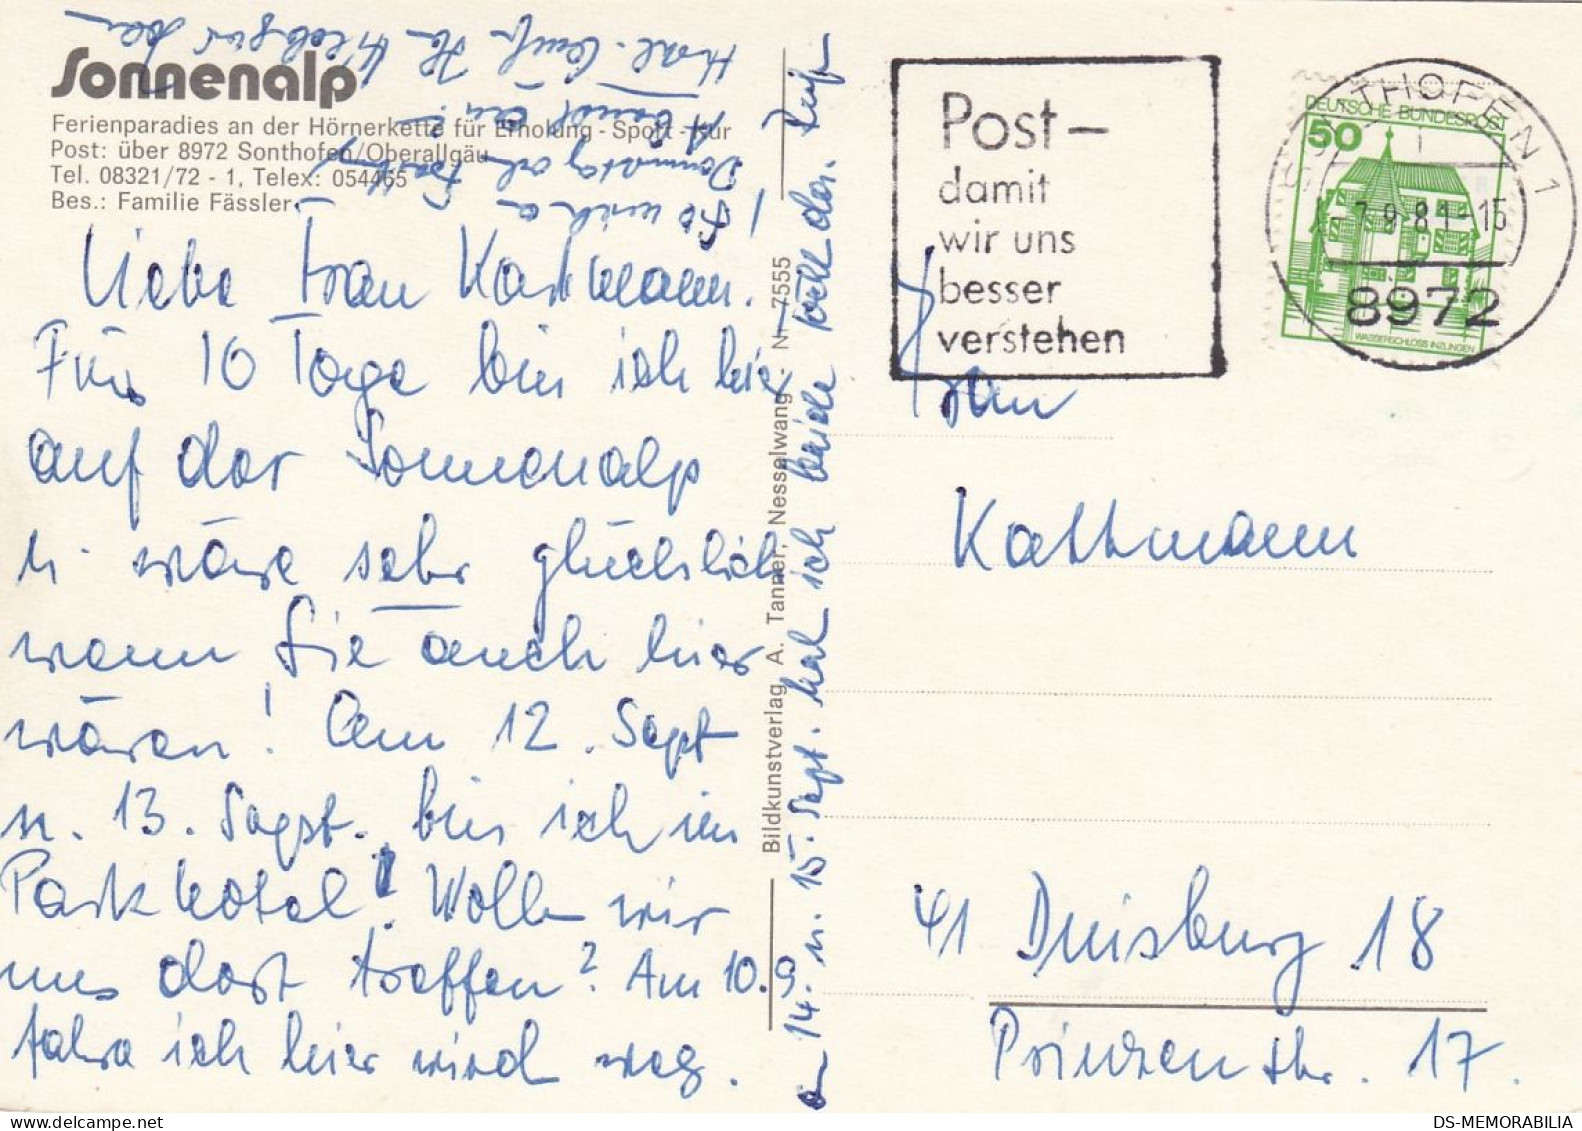 Sonnenalp
Ferienparadies an der Hörnerkette für Erholung - Sport - Kur
Post: über 8972 Sonthofen/Oberallgäu
Tel. 08321/72 - 1, Telex: 054465
Bes.: Familie Fässler
Liebe Frau Kathmann.
Für 10 Tage bin ich hier
auf der Sonnenalp
u. wäre sehr glücklich
wenn Sie auch hier
wären! Am 12. Sept
u. 13. Sept. bin ich im
Parkhotel! Wollen wir
uns dort treffen? Am 10.9
fahre ich hier wird weg.
14. u. 15. Sept. hal ich
Bildkunstverlag A. Tanner, Nesselwang. Nr. 7555
Post-
damit
wir uns
besser
verstehen
DEUTSCHE BUNDESPOST
50
WASSERSCHLOSS INZLINGEN
SONTHOFEN 1
-7.9.81-15
8972
Frau
Kathmann
41 Duisburg 18
Prinzenstr. 17.
DS-MEMORABILIA